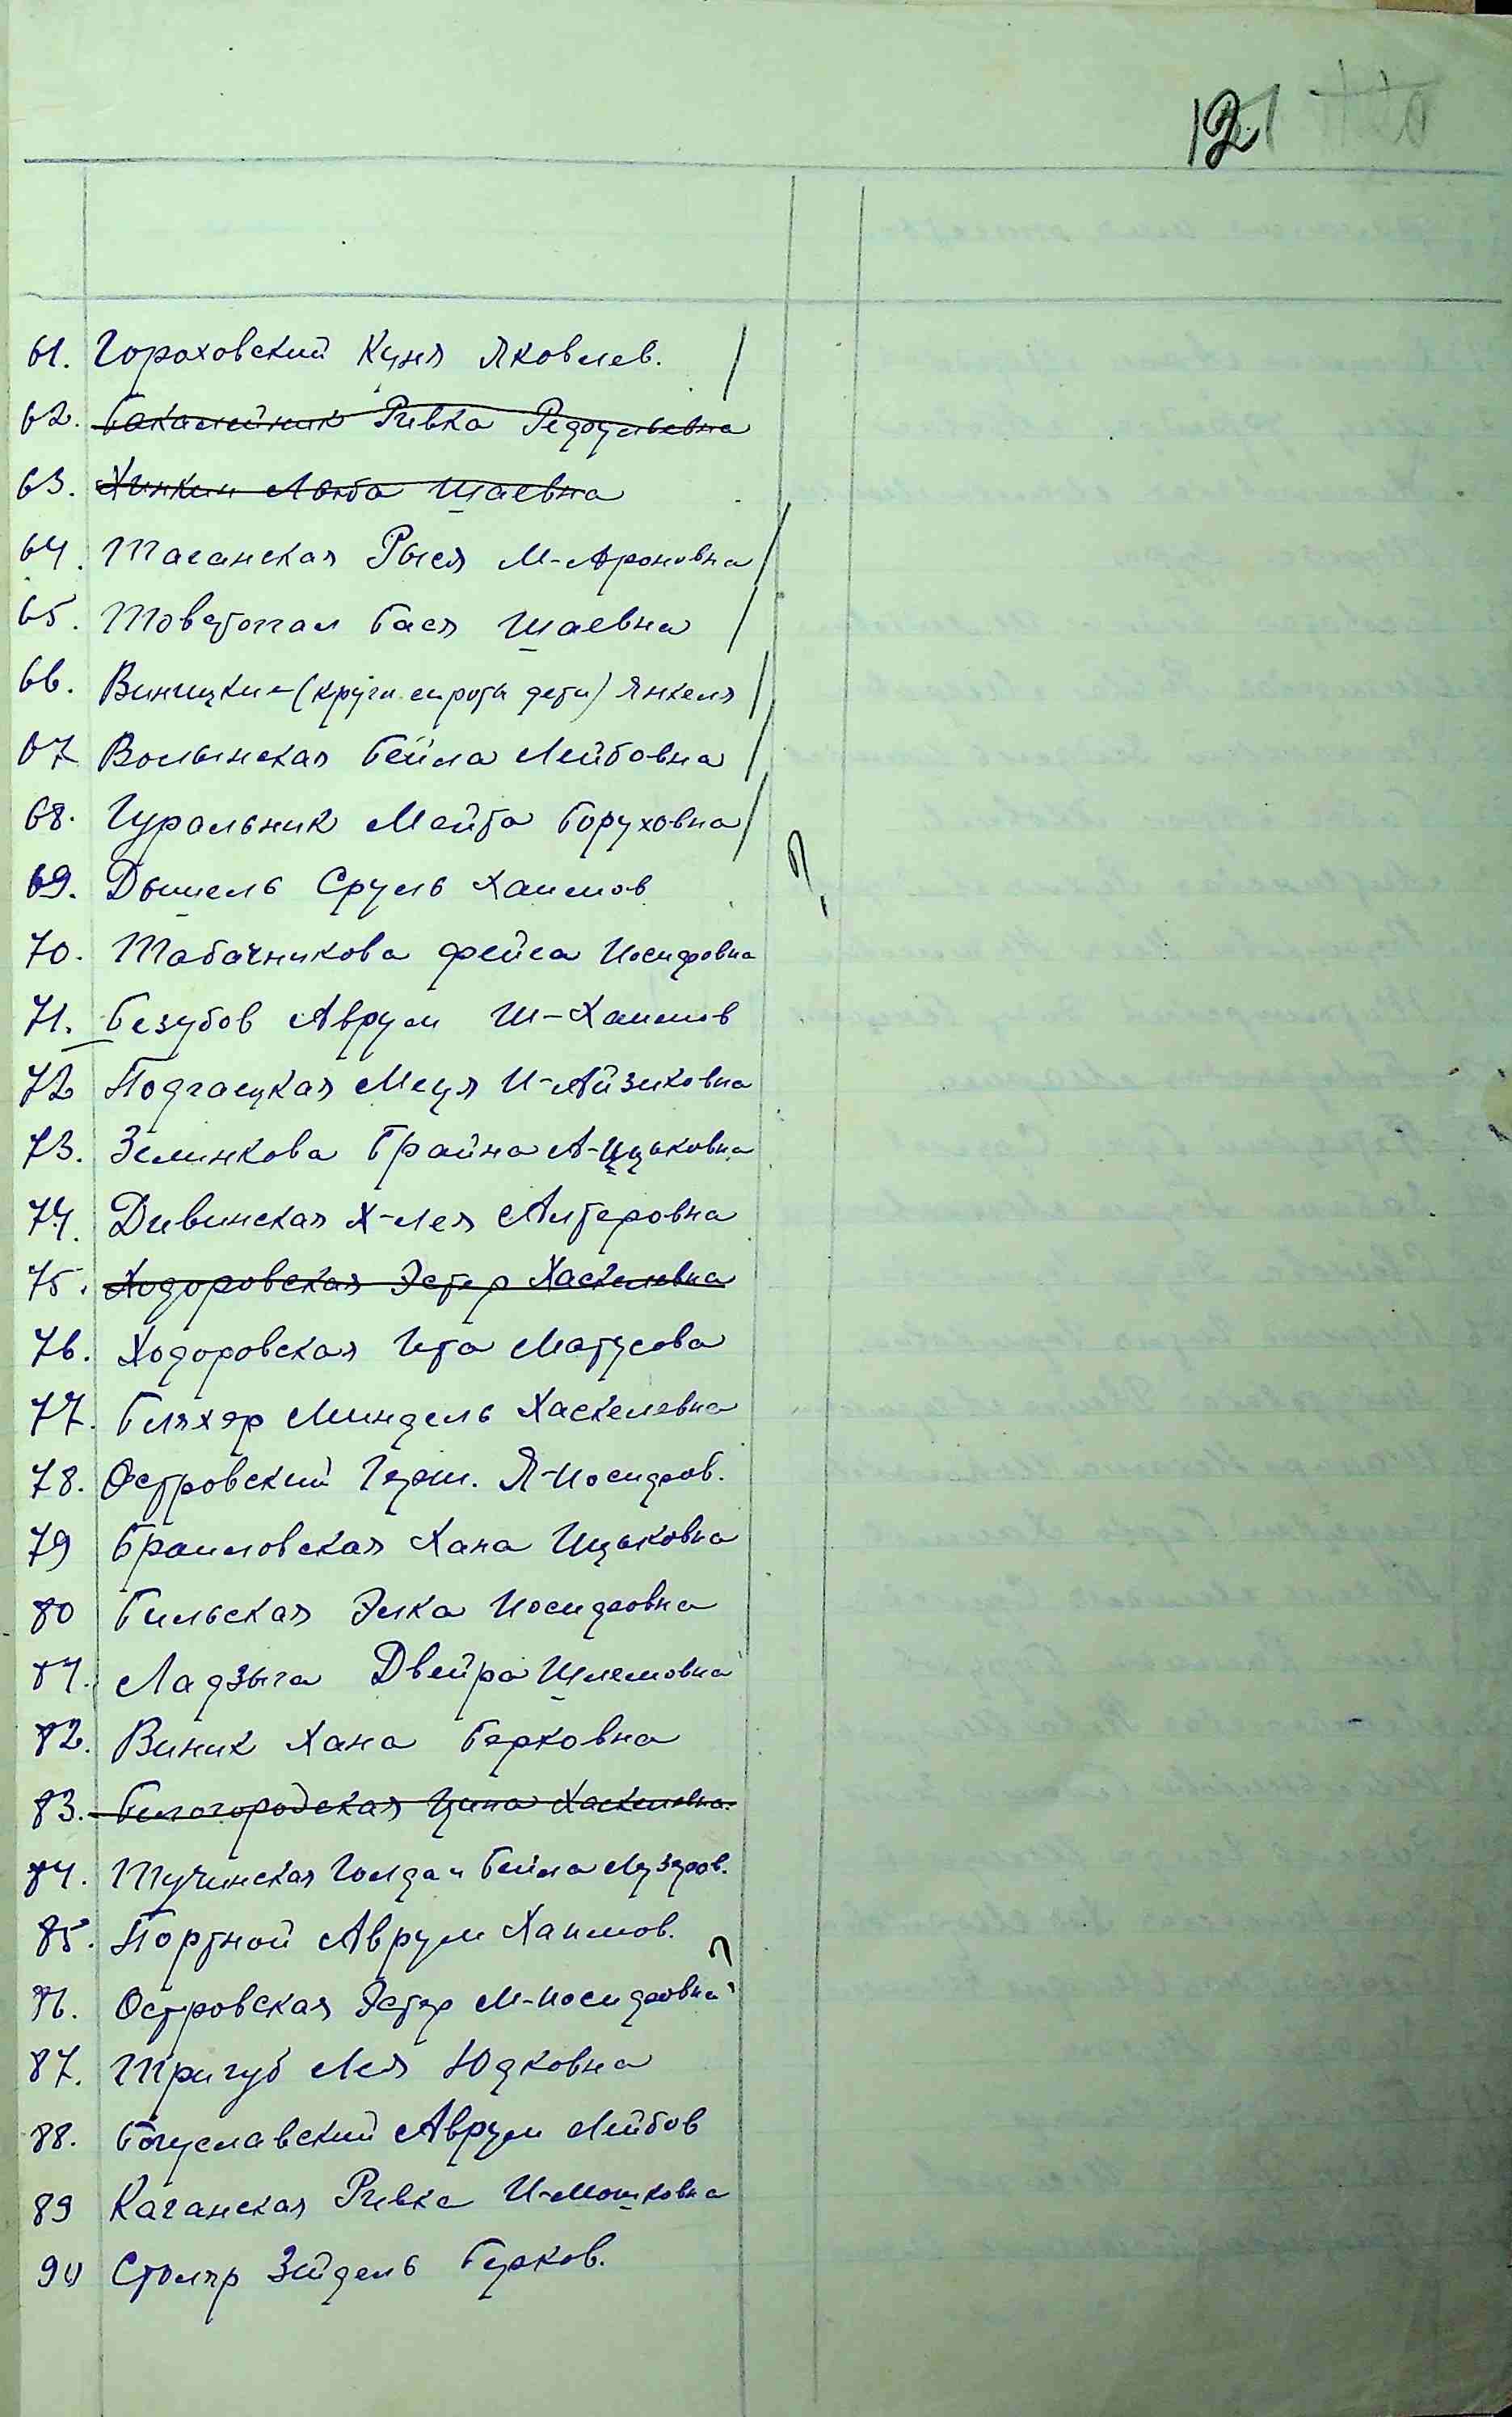 121
61. Гороховский Куня Яковлев.
62. Бакалейник Ривка
63. Хинкин Люба Шаевна
64. Таганская Рыся М-Ароновна
65. Товбтал Бася Шаевна
66. Виницкие (кругл. сироты дети) Янкеля
67 Волынская Бейла Лейбовна
68. Гуральник Мейта Боруховна
69. Дышель Сруль Хаимов
70. Табачникова Фейга Иосифовна
71. Безубов Аврум Ш-Хаимов
72 Подгаецкая Меця И-Айзиковна
73. Зелинкова Брайна А-Ицьковна
74. Дивинская Х-Лея Алтеровна
75. Ходоровская Эстер Хаскелевна
76. Ходоровская Ита Матусова
77. Бляхер Миндель Хаскелевна
78. Островский Герш. Я-Иосифов.
79 Браиловская Хана Ицьковна
80 Бильская Элка Иосифовна
81. Ладзыга Двейра Шлемовна
82. Виник Хана Берковна
83. Белогородская Ципа Хаскелевна.
84. Тучинская Голда и Бейла Лузеров.
85. Портной Аврум Хаимов.
86. Островская Эстер М-Иосифовна
87. Тригуб Лея Юдковна
88. Богуславский Аврум Лейбов
89 Каганская Ривка И-Мошковна
90 Столяр Зейдель Берков.